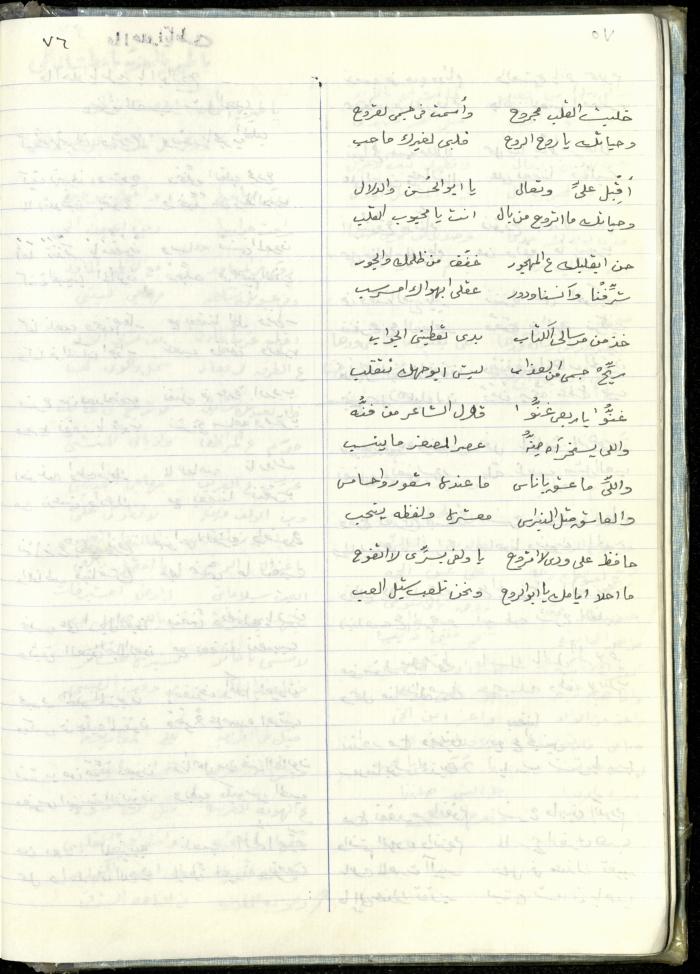 ٥٧
٧٦
خليت القلب مجروح وأمست في جسمي لقروح
وحياتك يا روح الروح قلبي لغيرك ما حب
أقبل عليّ وتعال يا ابو الحسن والدلال
وحياتك ما اتروح من بال انت يا محبوب القلب
حن ابقلبك ع المهجور خفف من ظلمك والجور
شرّفنا وآنسنا ودور عقلي ابهواك امسرسب
خذ من مرسالي الكتاب بدي تعطيني الجواب
ريّح جسمي من العذاب ليش ابوجهك تتقلب
غنّوا يا ربعي غنّوا قول الشاعر من فنّه
واللي يسخر آه منّه عصر المصغر ما ينسب
واللي ما عشق يا ناس ما عنده شعور واحساس
والعاشق مثل النبراس معشره ولفظه ينحب
حافظ على ودي لا اتروح يا ولفي بسرّي لا اتبوح
ما احلا ايامك يا ابو الروح ونحن نلعب شيل العب